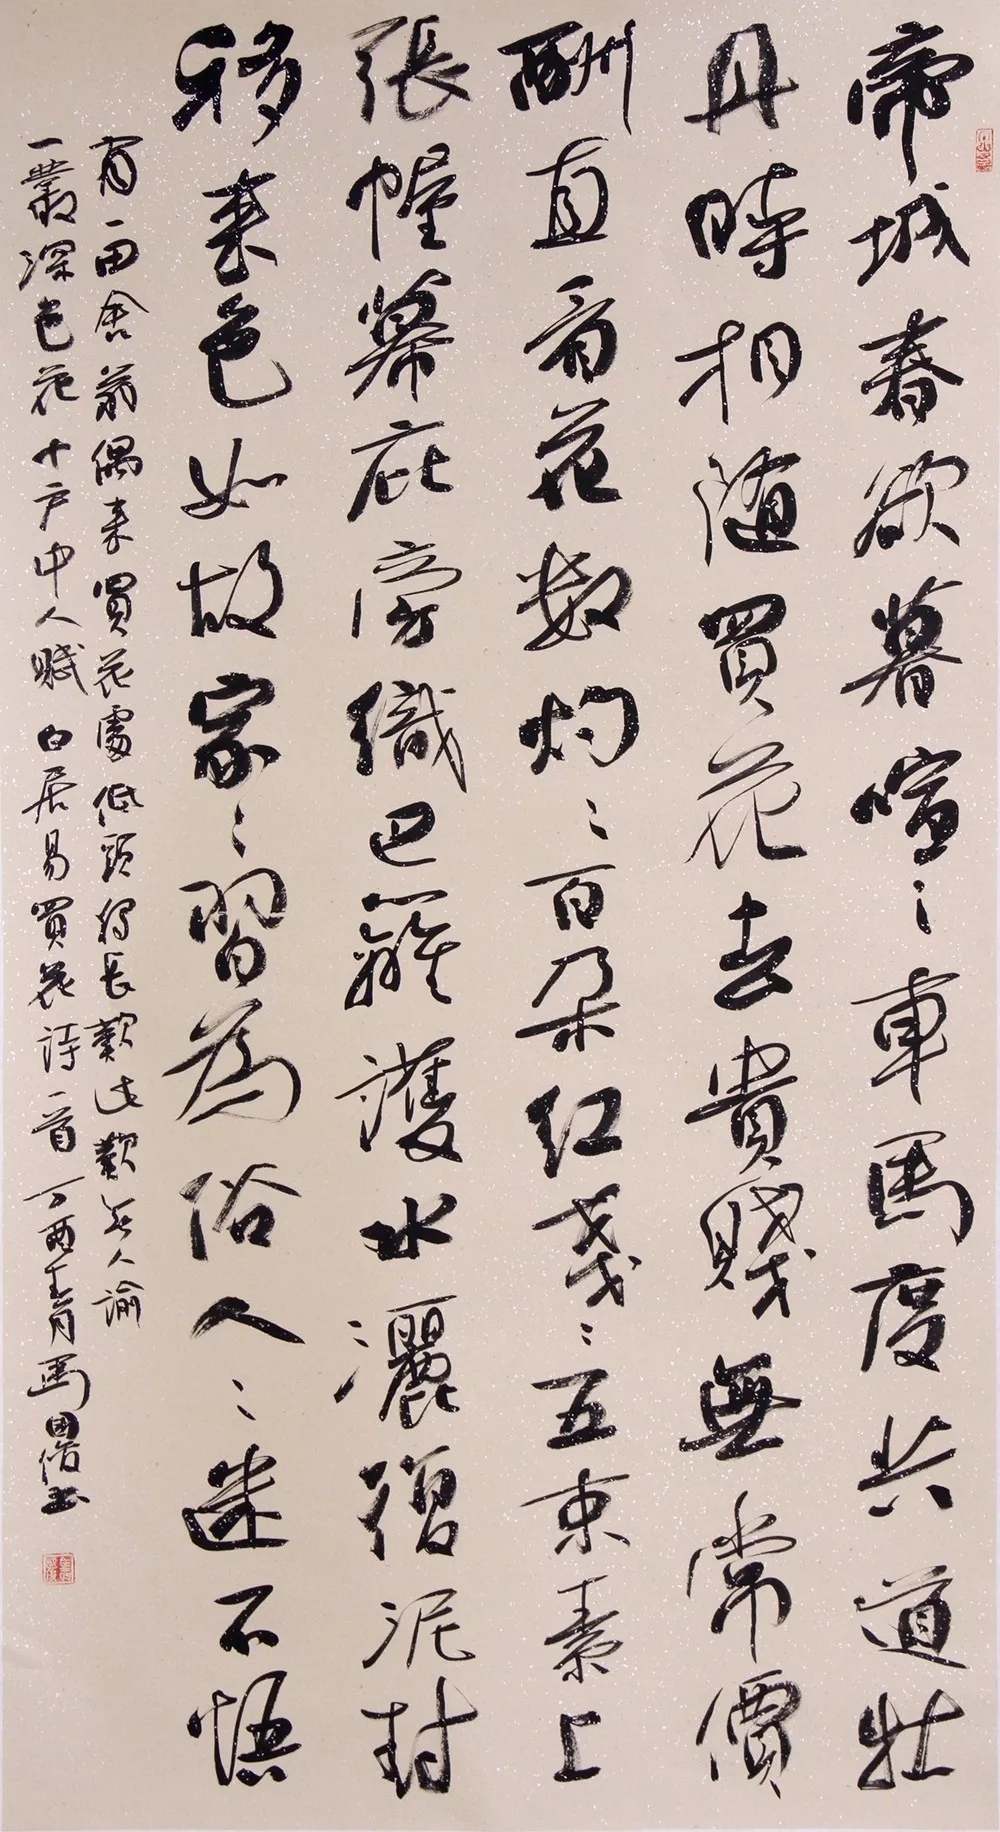 帝城春欲暮喧〻車馬度共道牡
丹時相随買花去貴賤無常價
酬直看花數灼〻百朵紅戔〻五束素上
張幄幕庇旁織巴籬護水灑復泥封
移来色如故家〻習為俗人〻迷不悟
有一田舍翁偶来買花處低頭獨長歎此歎無人諭
一叢深色花十户中人賦 白居易買花詩一首 丁酉 馬国俊書